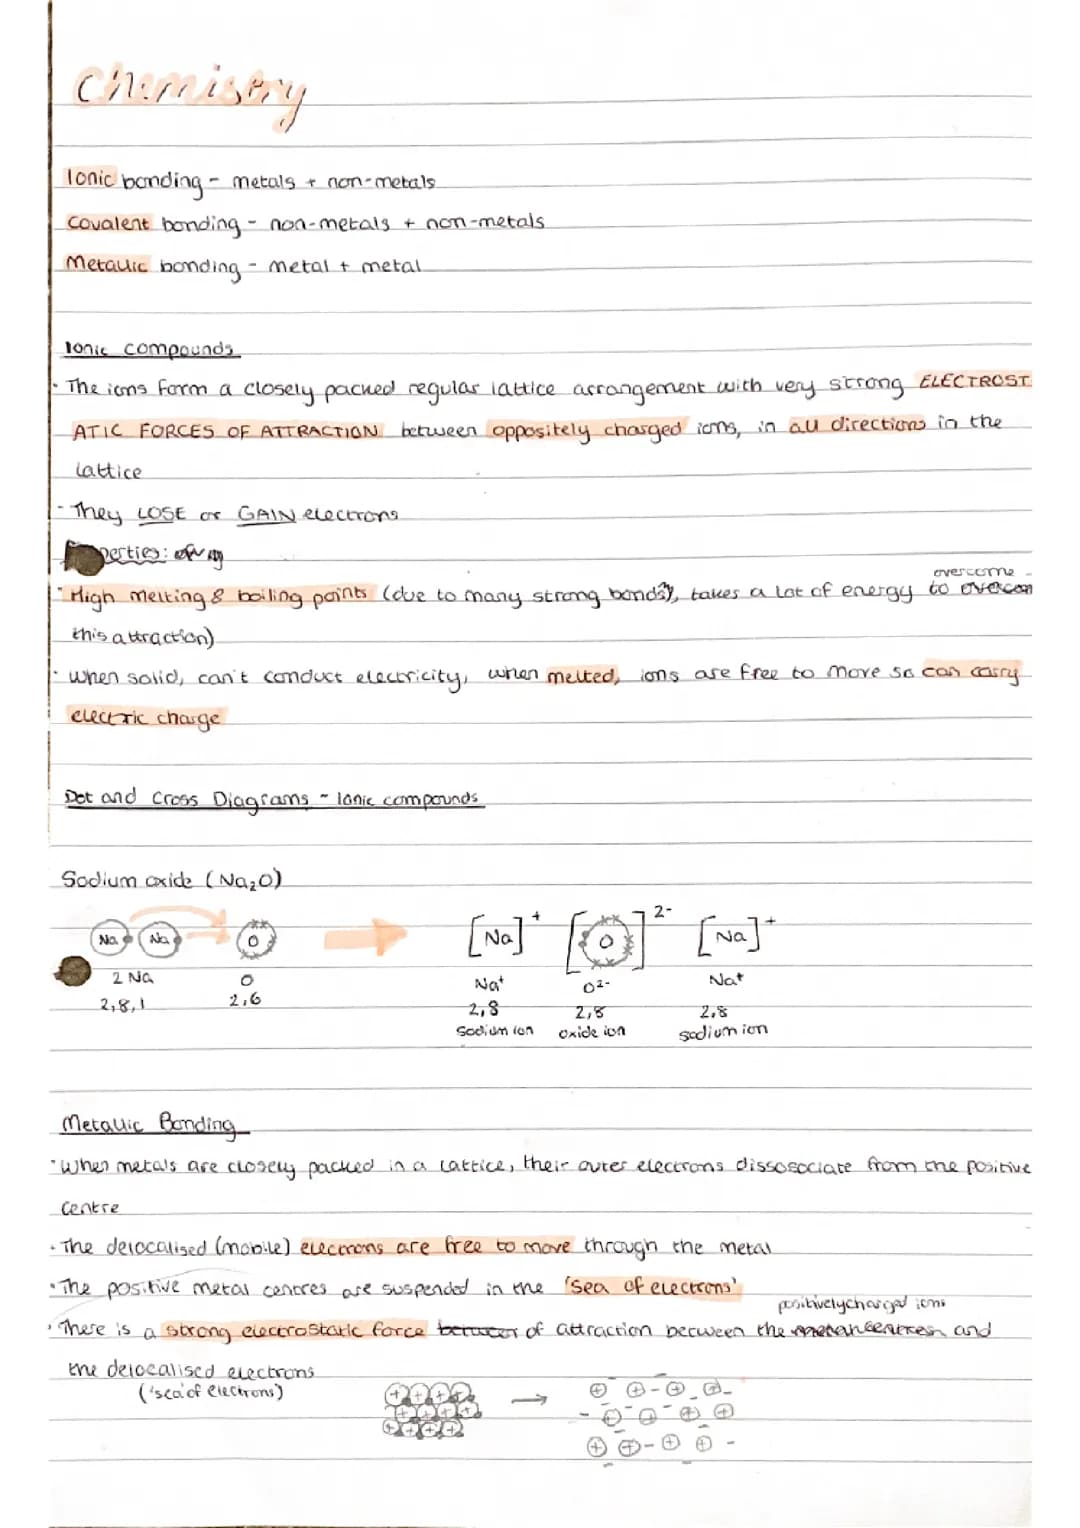 Chemistry
Ionic bonding - metals + non-metals
Covalent bonding - non-metals + non-metals
Metallic bonding - metal + metal
Ionic compounds
· The ions form a closely packed regular lattice arrangement with very strong ELECTROST
ATIC FORCES OF ATTRACTION between oppositely charged ions, in all directions in the
lattice
· They LOSE or GAIN electrons
perties:
overcome
· High melting & boiling points (due to many strong bonds), takes a lot of energy to overcom
this attraction)
· When solid, can't conduct electricity, when melted, ions are free to move so can carry
electric charge
Dot and Cross Diagrams - Ionic compounds
Sodium oxide (Na₂O)
Na Na O [Na]⁺ [O]²⁻ [Na]⁺
2 Na O Na⁺ O²⁻ Na⁺
2,8,1 2,6 2,8 2,8 2,8
Sodium ion oxide ion sodium ion
Metallic Bonding
· When metals are closely packed in a lattice, their outer electrons dissosociate from the positive
centre
· The delocalised (mobile) electrons are free to move through the metal
· The positive metal centres are suspended in the 'sea of electrons'
positively charged ions
· There is a strong electrostatic force between of attraction between the metal centres and
the delocalised electrons
('sea' of electrons)